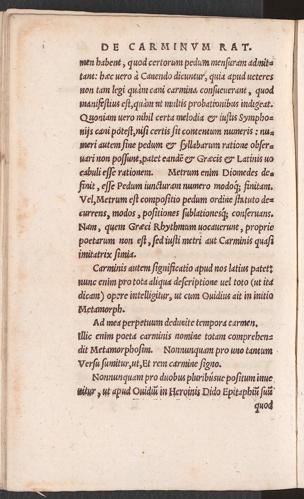 DE CARMINVM RAT.
men habent, quod certorum pedum mensuram admit-
tant: hæc uero à Canendo dicuntur, quia apud ueteres
non tam legi quàm cani carmina consueuerant, quod
manifestius est, quàm ut multis probationibus indigeat.
Quoniam uero nihil certa melodia & iustis Sympho-
nijs cani potest, nisi certis sit contentum numeris: nu-
meri autem sine pedum & syllabarum ratione obser-
uari non possunt, patet eandē & Græcis & Latinis uo
cabuli esse rationem. Metrum enim Diomedes de-
finit, esse Pedum iuncturam numero modoq́; finitam.
Vel, Metrum est compositio pedum ordine statuto de-
currens, modos, positiones sublationesq́; conseruans.
Nam, quem Græci Rhythmum uocauerunt, proprie
poetarum non est, sed iusti metri aut Carminis quasi
imitatrix simia.
Carminis autem significatio apud nos latius patet;
nunc enim pro tota aliqua descriptione uel toto (ut ita
dicam) opere intelligitur, ut cum Ouidius ait in initio
Metamorph.
Ad mea perpetuum deducite tempora carmen.
Illic enim poeta carminis nomine totam comprehen-
dit Metamorphosim. Nonnunquam pro uno tantum
Versu sumitur, ut, Et rem carmine signo.
Nonnunquam pro duobus pluribúsue positum inue
nitur, ut apud Ouidiū in Heroinis Dido Epitaphiū suū
quod